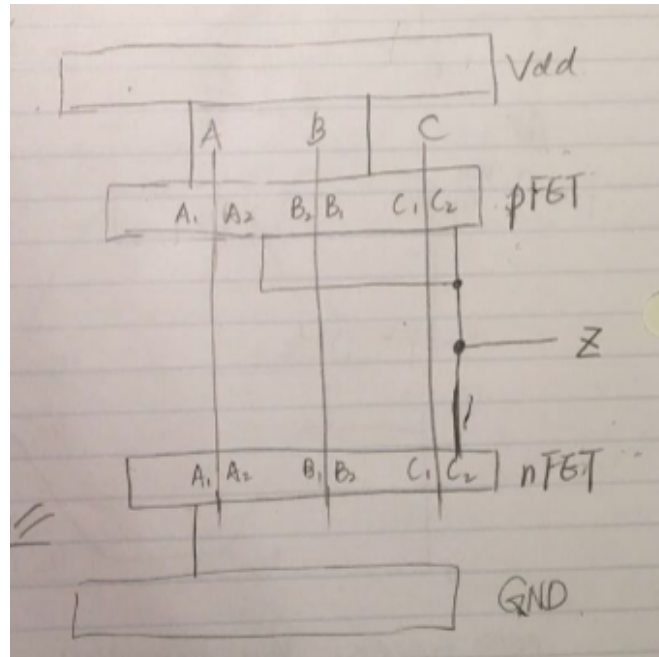 Vdd
A B C
A₁ A₂ B₂ B₁ C₁ C₂ pFET
Z
A₁ A₂ B₁ B₂ C₁ C₂ nFET
GND